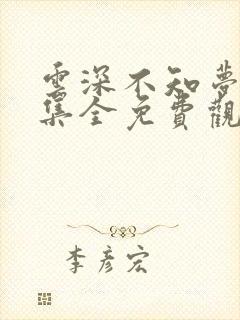 雲深不知夢
集全免費觀
李彥宏